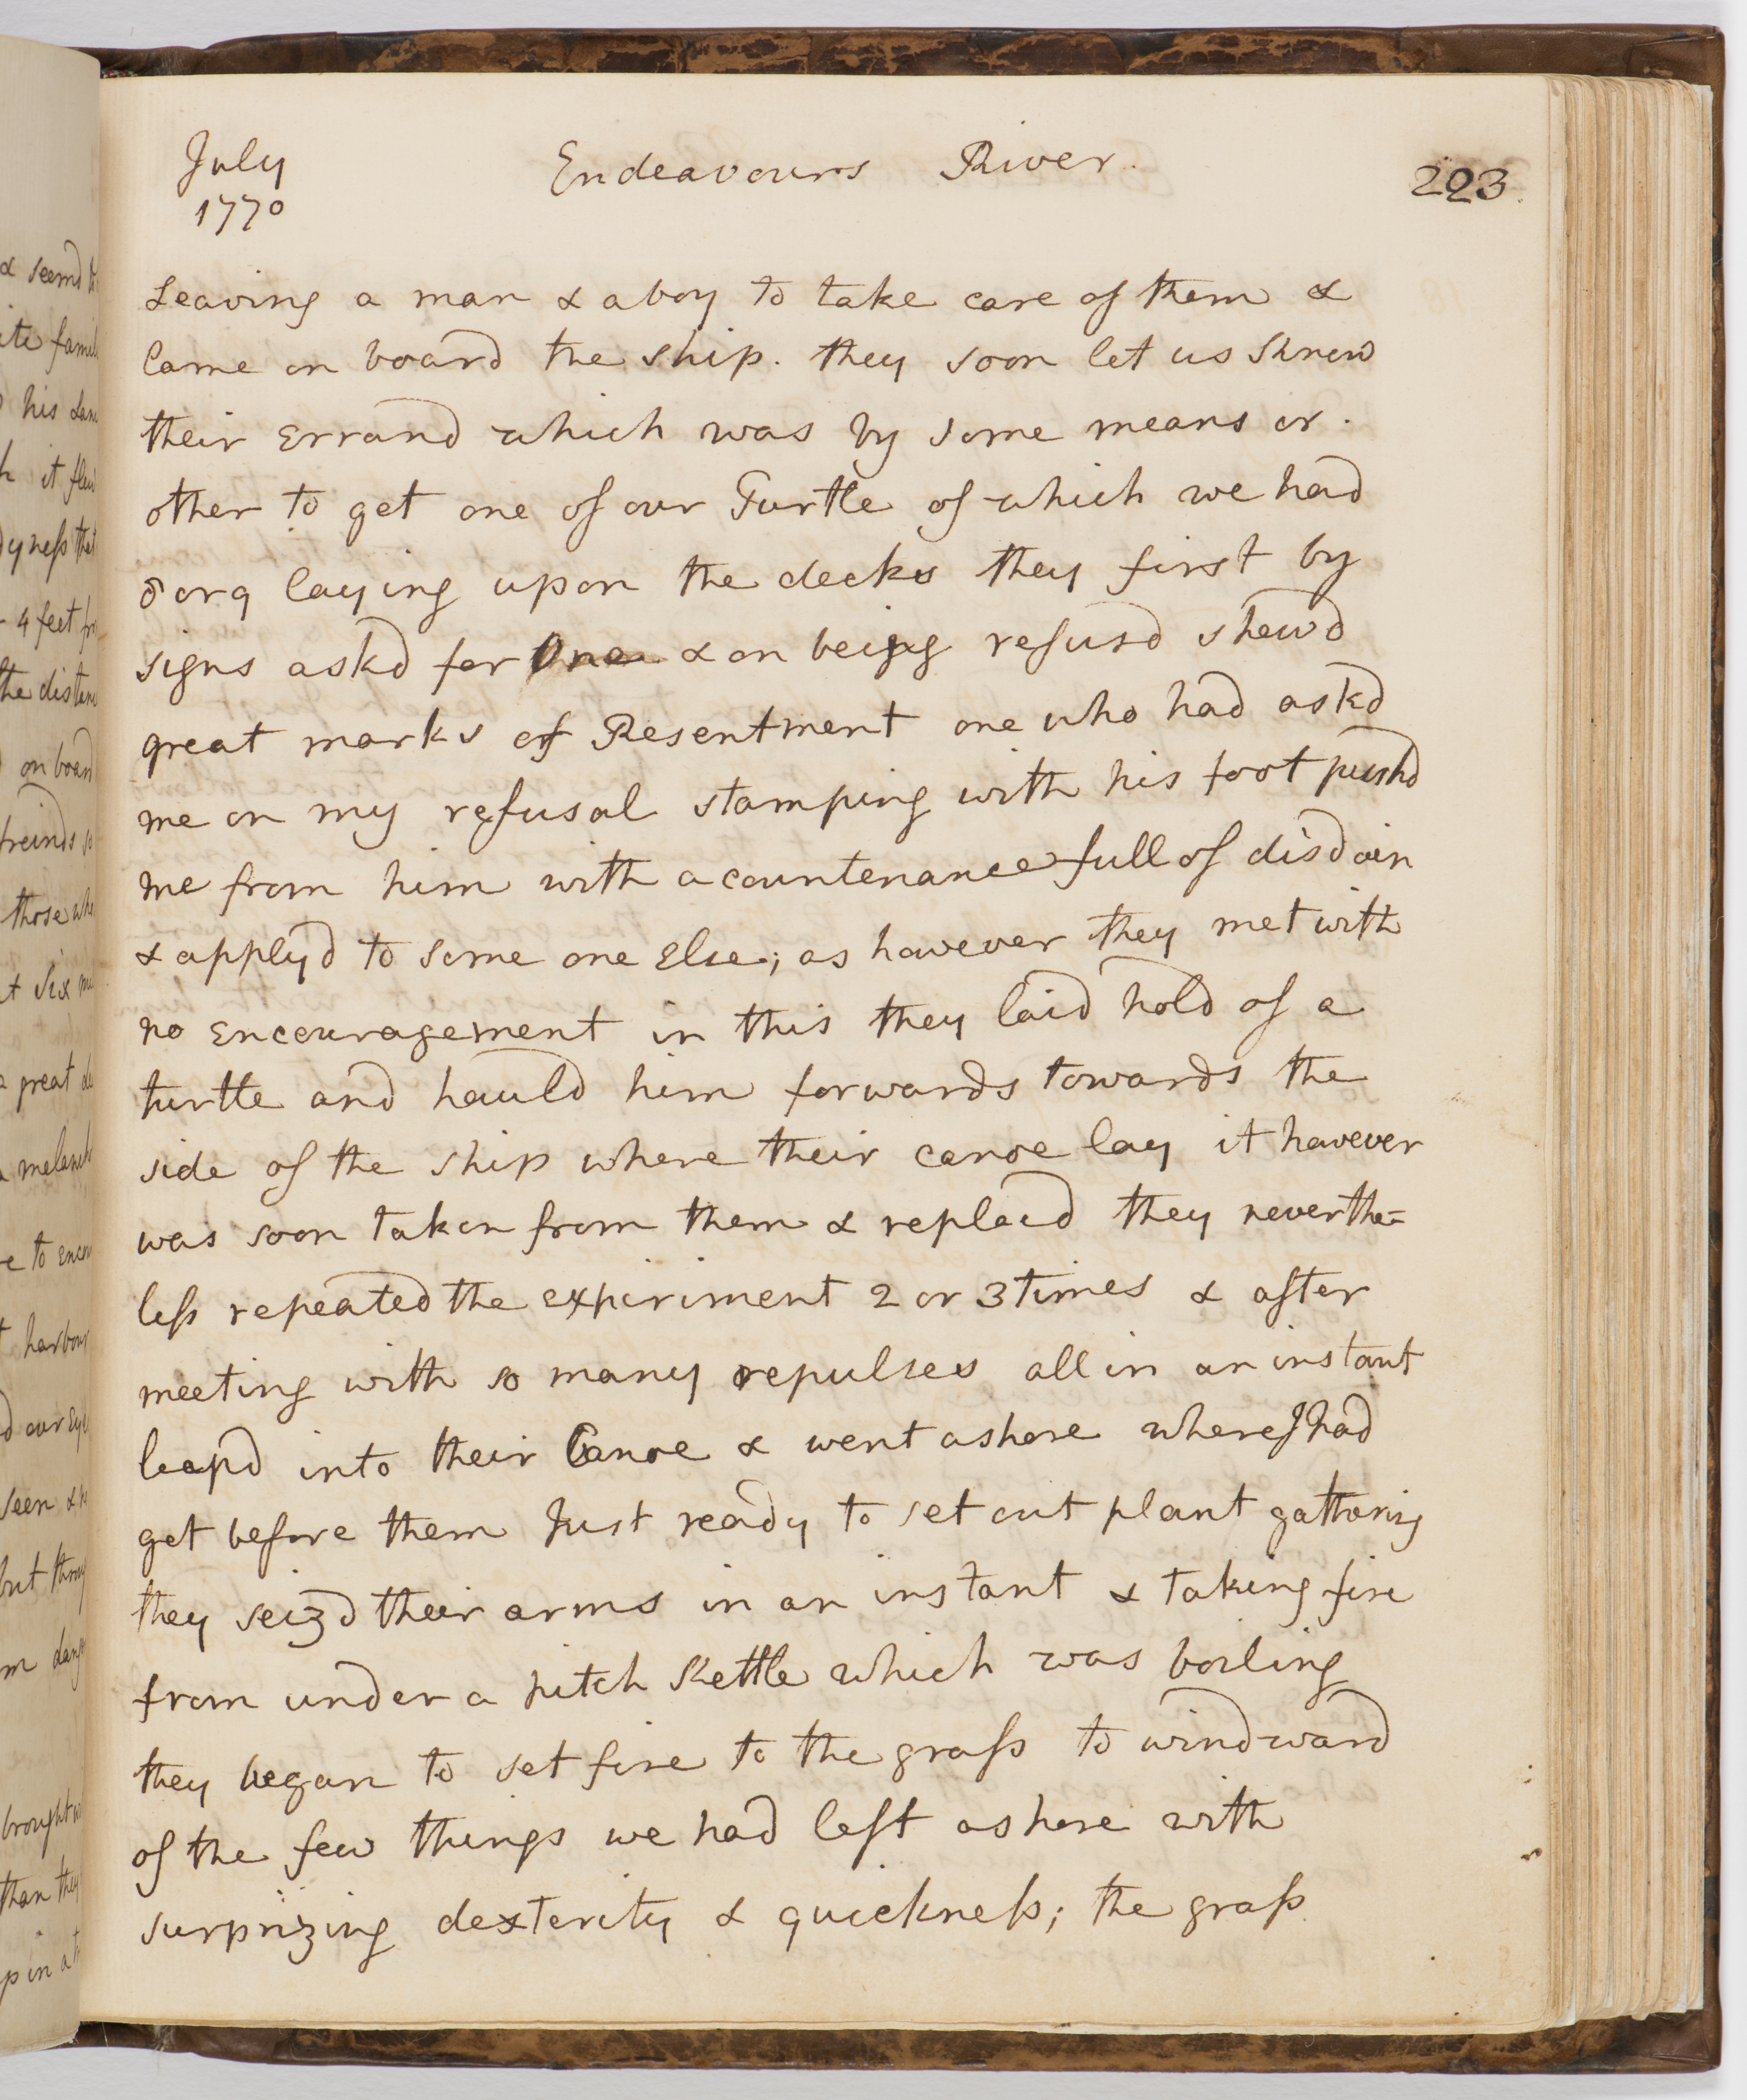 July
1770
Endeavours River.
223.
Leaving a man & a boy to take care of them &
Came on board the ship. they soon let us know
their Errand which was by some means or
other to get one of our Turtle of which we had
8 or 9 laying upon the decks they first by
signs askd for One & on being refusd shewd
great marks of Resentment one who had askd
me on my refusal stamping with his foot pushd
me from him with a countenance full of disdain
& applyd to some one Else; as however they met with
no Encouragement in this they laid hold of a
turtle and hauld him forwards towards the
side of the ship where their canoe lay it however
was soon taken from them & replacd they neverthe=
less repeated the expiriment 2 or 3 times & after
meeting with so many repulses all in an instant
leapd into their Canoe & went ashore where I had
got before them Just ready to set out plant gathering
they seizd their arms in an instant & taking fire
from under a pitch kettle which was boiling
they began to set fire to the grass to windward
of the few things we had left ashore with
surprizing dexterity & quickness; the grass
& seemd
his
it
4 feet
the distan
on board
freinds
those
at six
great
to
harbour
our
seen &
but
brought
than they
up in a